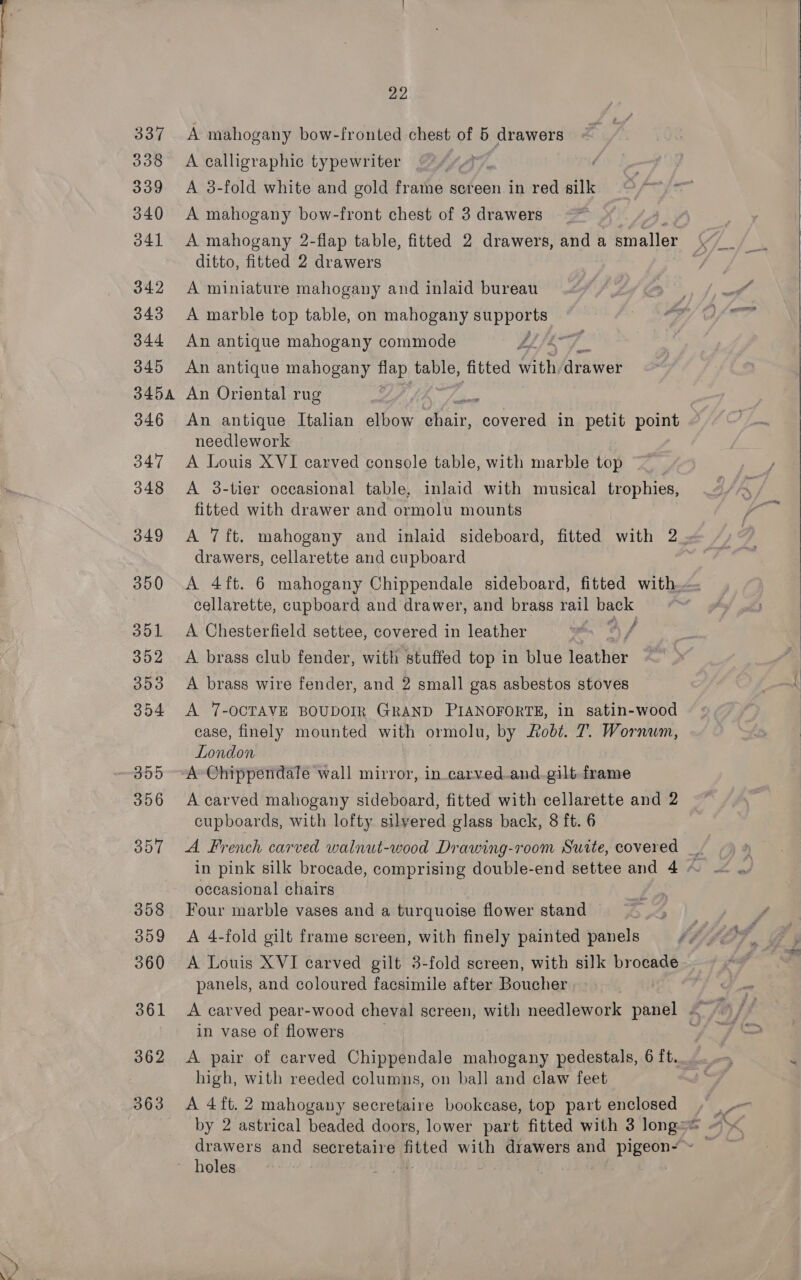 22
337 A mahogany bow-fronted chest of 5 drawers
338 A calligraphic typewriter
339 A 3-fold white and gold frame screen in red silk
340 A mahogany bow-front chest of 3 drawers
341 A mahogany 2-flap table, fitted 2 drawers, and a smaller
ditto, fitted 2 drawers
342 A miniature mahogany and inlaid bureau
343 A marble top table, on mahogany supports
344 An antique mahogany commode
345 An antique mahogany flap table, fitted with drawer
345A An Oriental rug
346 An antique Italian elbow chair, covered in petit point
needlework
347 A Louis XVI carved console table, with marble top
348 A 3-tier occasional table, inlaid with musical trophies,
fitted with drawer and ormolu mounts
349 A 7 ft. mahogany and inlaid sideboard, fitted with 2
drawers, cellarette and cupboard
350 A 4ft. 6 mahogany Chippendale sideboard, fitted with
cellarette, cupboard and drawer, and brass rail back
351 A Chesterfield settee, covered in leather
352 A brass club fender, with stuffed top in blue leather
353 A brass wire fender, and 2 small gas asbestos stoves
354 A 7-OCTAVE BOUDOIR GRAND PIANOFORTE, in satin-wood
case, finely mounted with ormolu, by Robt. T. Wornum,
London
355 A Chippendale wall mirror, in carved and gilt frame
356 A carved mahogany sideboard, fitted with cellarette and 2
cupboards, with lofty silvered glass back, 8 ft. 6
357 A French carved walnut-wood Drawing-room Suite, covered
in pink silk brocade, comprising double-end settee and 4
occasional chairs
358 Four marble vases and a turquoise flower stand
359 A 4-fold gilt frame screen, with finely painted panels
360 A Louis XVI carved gilt 3-fold screen, with silk brocade
panels, and coloured facsimile after Boucher
361 A carved pear-wood cheval screen, with needlework panel
in vase of flowers
362 A pair of carved Chippendale mahogany pedestals, 6 ft.
high, with reeded columns, on ball and claw feet
363 A 4 ft. 2 mahogany secretaire bookcase, top part enclosed
by 2 astrical beaded doors, lower part fitted with 3 long
drawers and secretaire fitted with drawers and pigeon-
holes